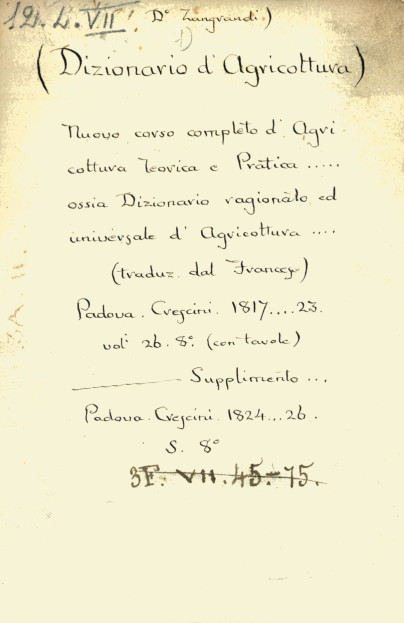 12. L. VII. D° Zangrandi)
1)
(Dizionario d' Agricoltura)
Nuovo corso completo d' Agri-
coltura Teorica e Pratica .....
ossia Dizionario ragionato ed
universale d' Agricoltura ....
(traduz. dal Francese)
Padova. Crescini. 1817....23.
vol¹ 26. 8.° (con tavole)
Supplimento ...
Padova. Crescini. 1824...26.
S. 8°
3F. VII. 45.-75.